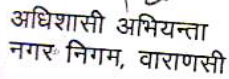 अधिशासी अभियन्ता
नगर निगम, वाराणसी